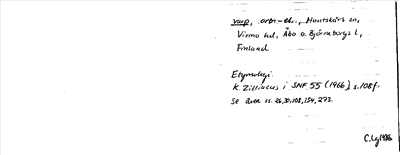 varp, ortn-el., Houtskärs sn,
Virmo hd, Åbo o. Björneborgs l,
Finland
Etymologi:
K. Zilliacus i SNF 55 (1966) s.108f.
se även ss. 26, 39, 108, 154, 273.
C.Lg 1986